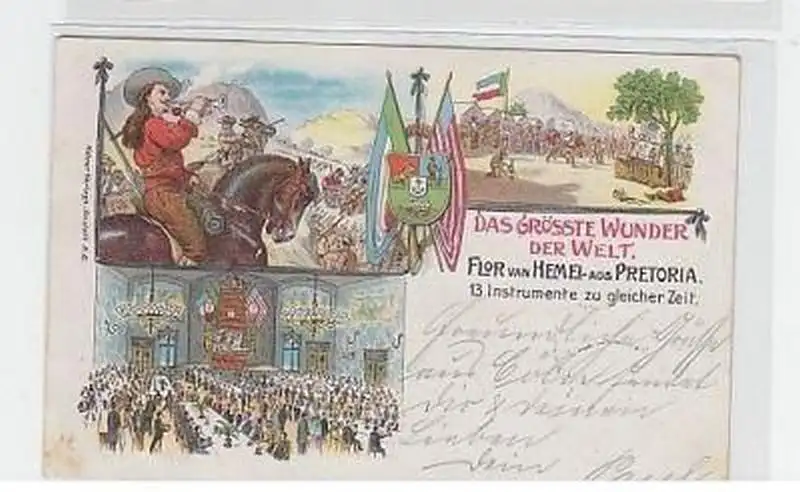 DAS GRÖSSTE WUNDER
DER WELT.
FLOR VAN HEMEL AUS PRETORIA.
13 Instrumente zu gleicher Zeit.
Freundliche Grüße
aus Cöln sendet
dir & deinen
Lieben
Dein